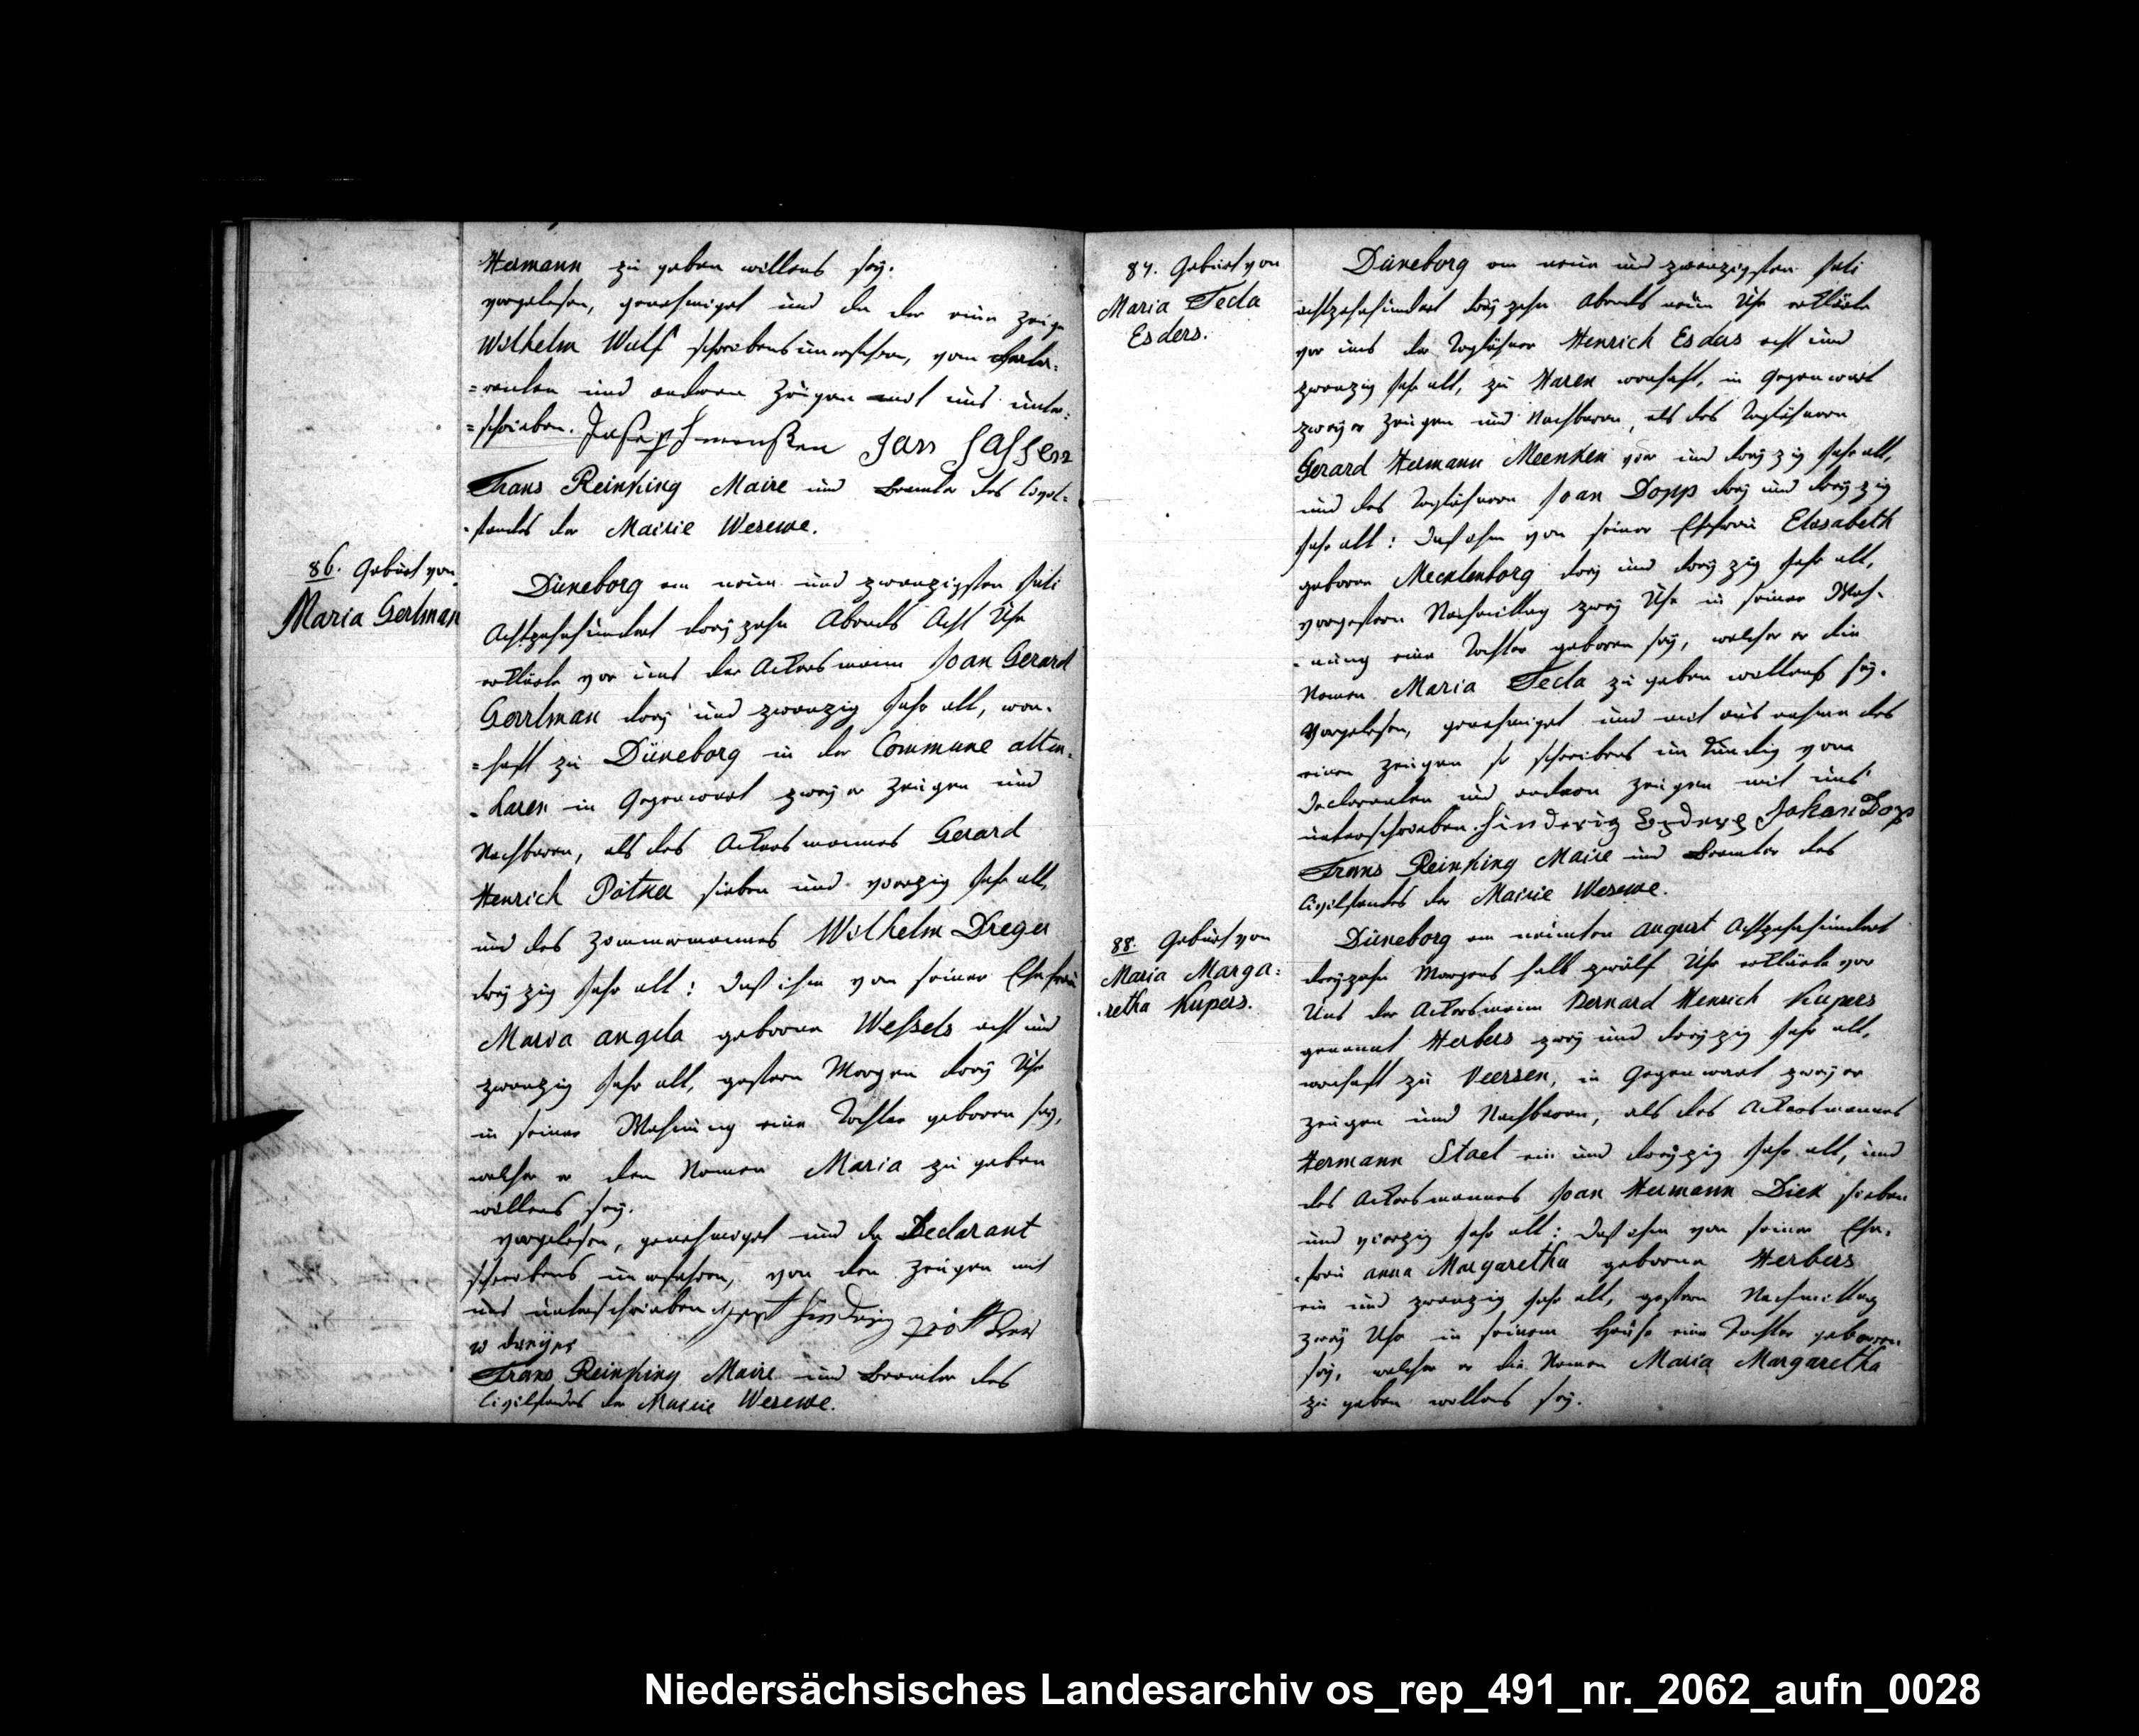 Hermann zu geben willens seÿ.
vorgelesen, genehmiget und da der eine Zeuge
Wilhelm Wulf schreibensunerfahren, vom Decla-
=ranten und anderen Zeugen mit uns unter-
=schrieben. Jan Hassen
Frans Reinking Maire und Beamter des Civil-
-standes der Mairie Wesewe.
86. Geburt von
Maria Gerlman
Düneborg am neun und zwanzigsten Juli
Achtzehnhundert dreÿzehn Abends Acht Uhr
erklärte vor uns der Ackersmann Joan Gerard
Gerrlman dreÿ und zwanzig Jahr alt, won-
=haft zu Düneborg in der Commune alten-
-haren in Gegenwart zweÿer Zeugen und
Nachbaren, als des Ackersmannes Gerard
Henrich Pötker sieben und vierzig Jahr alt,
und des Zimmermannes Wilhelm Dreyer
dreÿzig Jahr alt: Daß ihm von seiner Ehefrau
Maria angela geborne Weßels acht und
zwanzig Jahr alt, gestern Morgen dreÿ Uhr
in seiner Wohnung eine Tochter geboren seÿ,
welcher er den Namen Maria zu geben
willens seÿ.
vorgelesen, genehmiget und da Declarant
schreibens unerfahren, von den Zeugen mit
uns unterschrieben
w dreÿer
Frans Reinking Maire und Beamter des
Civilstandes der Mairie Wesewe.
87. Geburt von
Maria Tecla
Esders.
Düneborg am neun und zwanzigsten Juli
achtzehnhundert dreÿzehn Abends neun Uhr erklärte
vor uns der Taglöhner Henrich Esders acht und
zwanzig Jahr alt, zu Haren wonhaft, in Gegenwart
zweÿer Zeugen und Nachbaren, als des Taglöhners
Gerard Hermann Meenken vier und dreÿzig Jahr alt,
und des Taglöhners Joan Dopp dreÿ und dreÿzig
Jahr alt: Daß ihm von seiner Ehefrau Elisabeth
geborne Mecklenborg dreÿ und dreÿzig Jahr alt,
vorgestern Nachmittag zweÿ Uhr in seiner Woh-
-nung eine Tochter geboren seÿ, welcher er die
Namen Maria Tecla zu geben willens seÿ.
Vorgelesen, genehmiget und mit ausnahme des
einen Zeugen so schreibens unkundig vom
Declaranten und andern Zeugen mit uns
unterschrieben. Hinderig Esders Johan Dop
Frans Reinking Maire und Beamter des
Civilstandes der Mairie Wesewe.
88. Geburt von
Maria Marga=
-retha Kupers.
Düneborg am neunten august Achtzehnhundert
dreÿzehn Morgens halb zwölf Uhr erklärte vor
Uns der Ackersmann Bernard Henrich Kupers
genannt Herbers zweÿ und dreÿzig Jahr alt,
wonhaft zu Veersen, in Gegenwart zweÿer
Zeugen und Nachbaren, als des Ackersmannes
Hermann Stael ein und dreÿzig Jahr alt, und
des Ackersmannes Joan Hermann Diek sieben
und vierzig Jahr alt: Daß ihm von seiner Ehe-
-frau anna Margaretha geborne Herbers
ein und zwanzig Jahr alt, gestern Nachmittag
zweÿ Uhr in seinem Hause eine Tochter geboren
seÿ, welcher er die Namen Maria Margaretha
zu geben willens seÿ.
Niedersächsisches Landesarchiv os_rep_491_nr._2062_aufn_0028